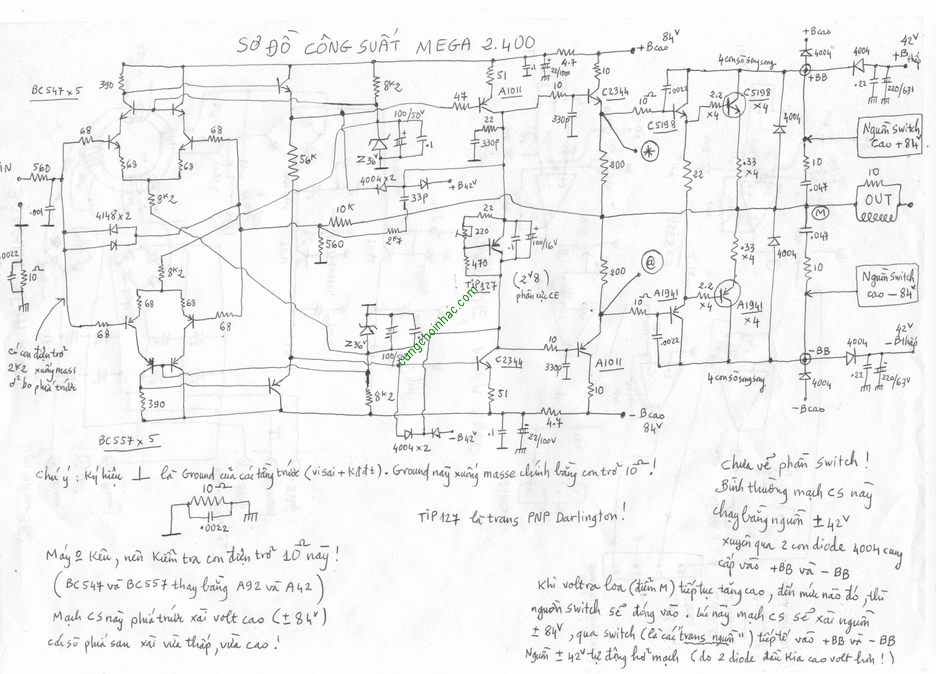 SƠ ĐỒ CÔNG SUẤT MEGA 2.400
+Bcao
84V
+Bcao
4004
4004
42V
+Bthấp
+BB
.22
220/63V
BC547 x 5
390
8K2
51
A1011
.1
22/100V
4.7
10
10
C2344
330p
4 con sò song song
10Ω
.0022
C5198
2.2
x4
C5198
x4
4004
Nguồn Switch
Cao +84V
47
22
330p
100/50V
.1
Z36V
4004 x 2
+B42V
33p
68
68
68
68
56K
IN
560
.001
8K2
4148 x 2
10K
560
2K7
22
220
470
TIP127
.1
100/16V
(2V8)
phân cực CE
200
*
22
.33
x4
10
.047
M
10
OUT
.047
.33
x4
4004
10
Nguồn Switch
Cao – 84V
200
@
.0022
10Ω
8K2
68
68
68
68
Có con điện trở
2K2 xuống mass
ở bo phía trước
Z36V
100/50V
congchoinhac.com
C2344
10
330p
A1011
10Ω
A1941
.0022
2.2
x4
A1941
x4
4 con sò song song
-BB
4004
42V
-Bthấp
.22
220/63V
4004
-Bcao
390
8K2
51
10
BC557 x 5
4004 x 2
-B42V
.1
22/100V
4.7
- Bcao
84V
Chú ý : Ký hiệu ⊥ là Ground của các tầng trước (visai + Kđđt). Ground này xuống masse chính bằng con trở 10Ω !
10Ω
.0022
TIP127 là trans PNP Darlington !
Máy ù kêu, nên kiểm tra con điện trở 10Ω này !
(BC547 và BC557 thay bằng A92 và A42)
Mạch CS này phía trước xài volt cao (± 84V)
còn sò phía sau xài vừa thấp, vừa cao !
Chưa vẽ phần switch !
Bình thường mạch CS này
chạy bằng nguồn ± 42V
xuyên qua 2 con diode 4004 cung
cấp vào +BB và – BB
Khi volt ra loa (điểm M) tiếp tục tăng cao, đến mức nào đó, thì
nguồn switch sẽ đóng vào. Lúc này mạch CS sẽ xài nguồn
± 84V, qua switch (là cái "trans nguồn") tiếp tế vào +BB và – BB
Nguồn ± 42V tự động hở mạch (do 2 diode đầu kia cao volt hơn !)